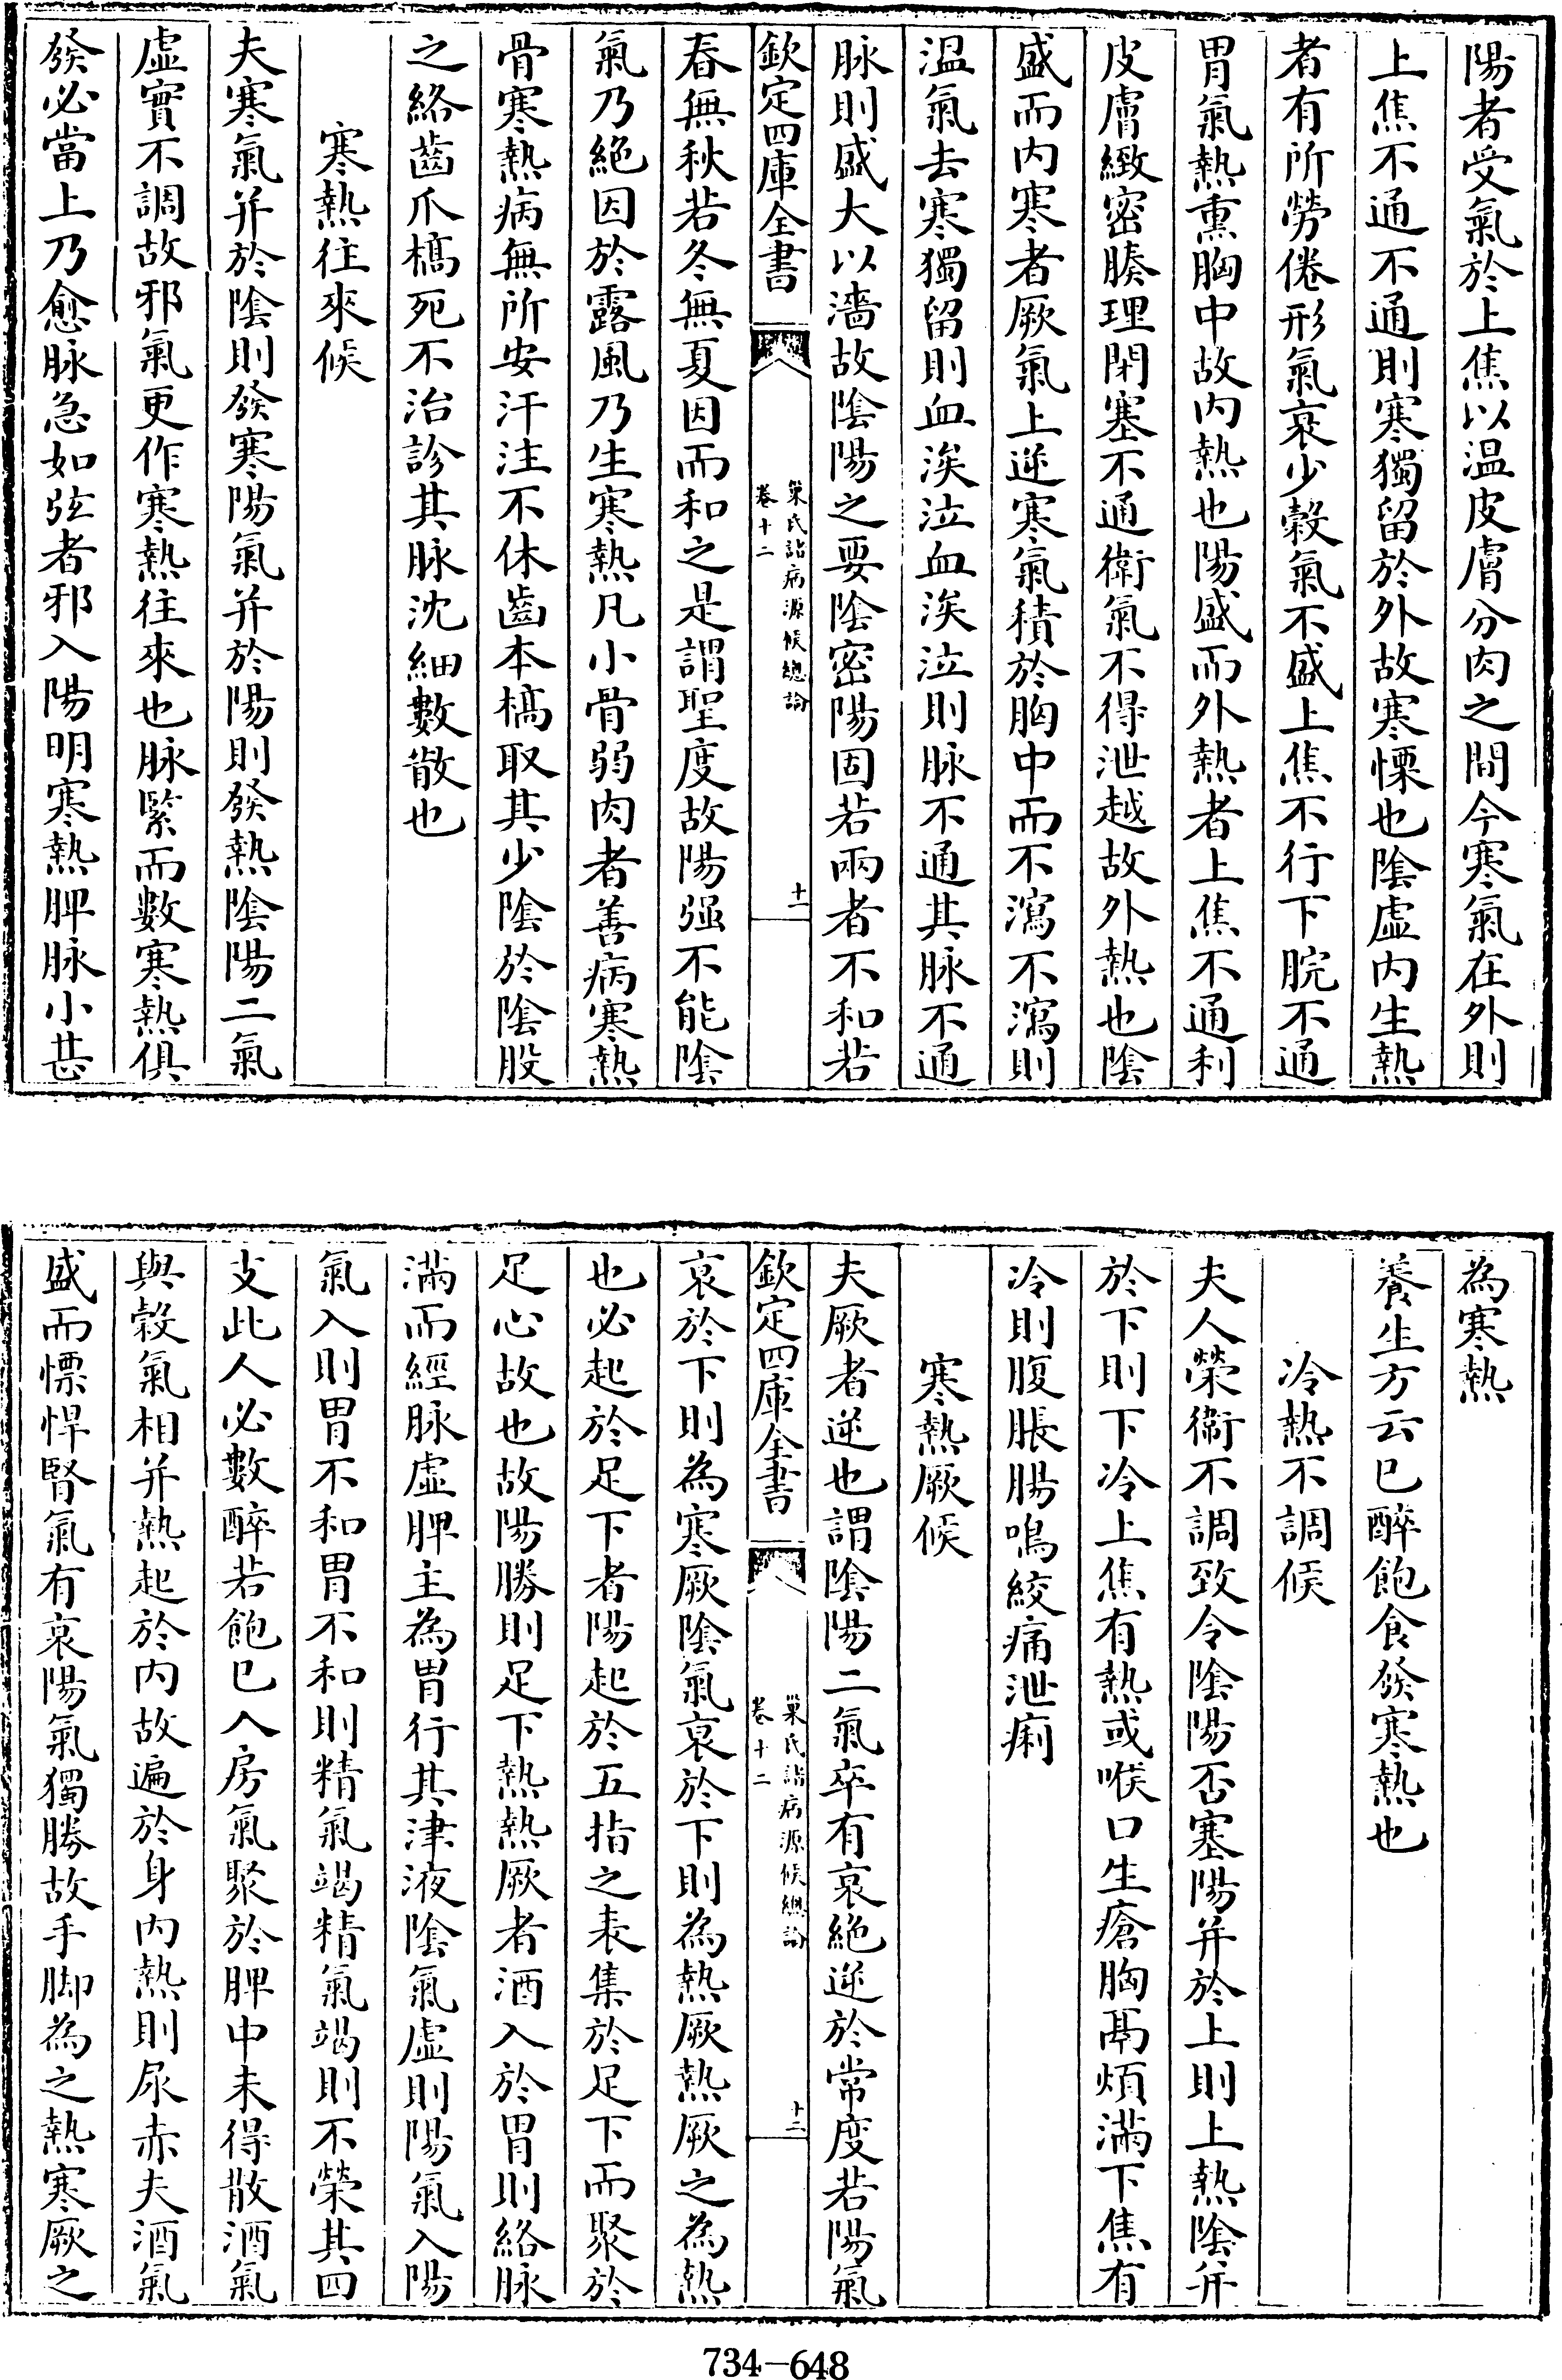 陽者受氣於上焦以温皮膚分肉之間今寒氣在外則
上焦不通不通則寒獨留於外故寒慄也陰虚内生熱
者有所勞倦形氣衰少榖氣不盛上焦不行下脘不通
胃氣熱熏胸中故内熱也陽盛而外熱者上焦不通利
皮膚緻密腠理閉塞不通衛氣不得泄越故外熱也陰
盛而内寒者厥氣上逆寒氣積於胸中而不瀉不瀉則
温氣去寒獨留則血涘泣血涘泣則脉不通其脉不通
脉則盛大以濇故陰陽之要陰密陽固若兩者不和若
欽定四庫全書
巢氏諸病源候總論
卷十二
十一
春無秋若冬無夏因而和之是謂聖度故陽强不能陰
氣乃絶因於露風乃生寒熱凡小骨弱肉者善病寒熱
骨寒熱病無所安汗注不休齒本槁取其少陰於陰股
之絡齒爪槁死不治診其脉沈細數散也
寒熱往來候
夫寒氣并於陰則發寒陽氣并於陽則發熱陰陽二氣
虚實不調故邪氣更作寒熱往來也脉緊而數寒熱俱
發必當上乃愈脉急如弦者邪入陽明寒熱脾脉小甚
為寒熱
養生方云已醉飽食發寒熱也
冷熱不調候
夫人榮衛不調致令陰陽否塞陽并於上則上熱陰并
於下則下冷上焦有熱或喉口生瘡胸鬲煩滿下焦有
冷則腹脹腸鳴絞痛泄痢
寒熱厥候
夫厥者逆也謂陰陽二氣卒有衰絶逆於常度若陽氣
欽定四庫全書
巢氏諸病源候總論
卷十二
十二
衰於下則為寒厥陰氣衰於下則為熱厥熱厥之為熱
也必起於足下者陽起於五指之表集於足下而聚於
足心故也故陽勝則足下熱熱厥者酒入於胃則絡脉
滿而經脉虚脾主為胃行其津液陰氣虚則陽氣入陽
氣入則胃不和胃不和則精氣竭精氣竭則不榮其四
支此人必數醉若飽已入房氣聚於脾中未得散酒氣
與榖氣相并熱起於内故遍於身内熱則尿赤夫酒氣
盛而慓悍腎氣有衰陽氣獨勝故手脚為之熱寒厥之
734-648